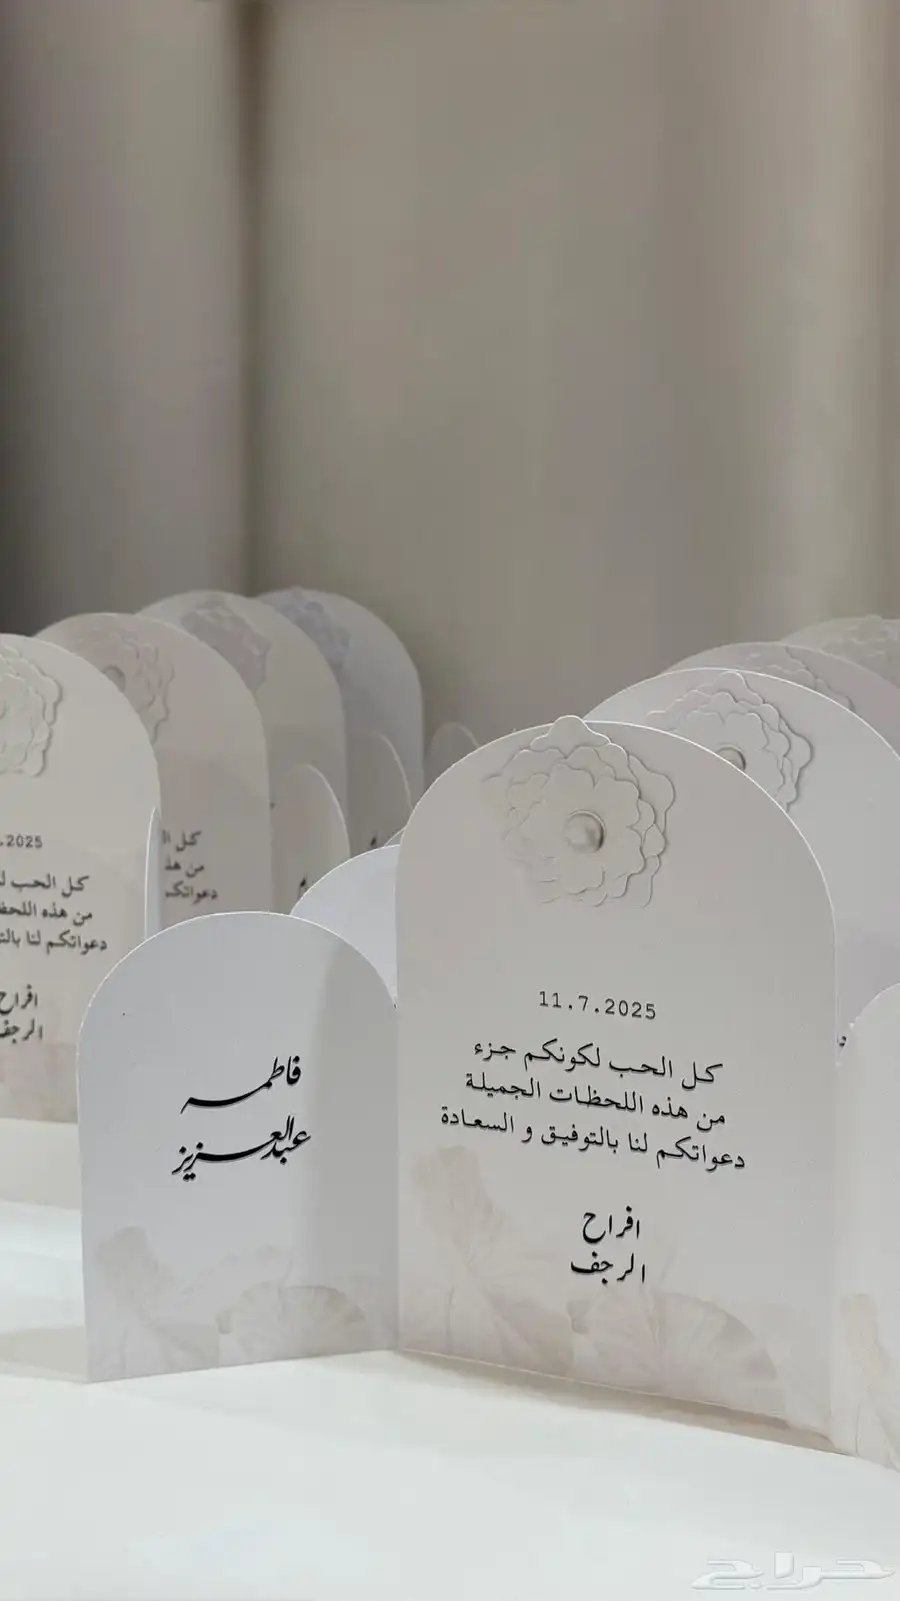 فاطمه
عبدالعزيز
11.7.2025
كل الحب لكونكم جزء
من هذه اللحظات الجميلة
دعواتكم لنا بالتوفيق و السعادة
افراح
الرجف
.2025
كل الحب ل
من هذه اللحظ
دعواتكم لنا بالتو
افراح
الرجف
كل ا
من هذ
دعواتكم
حراج